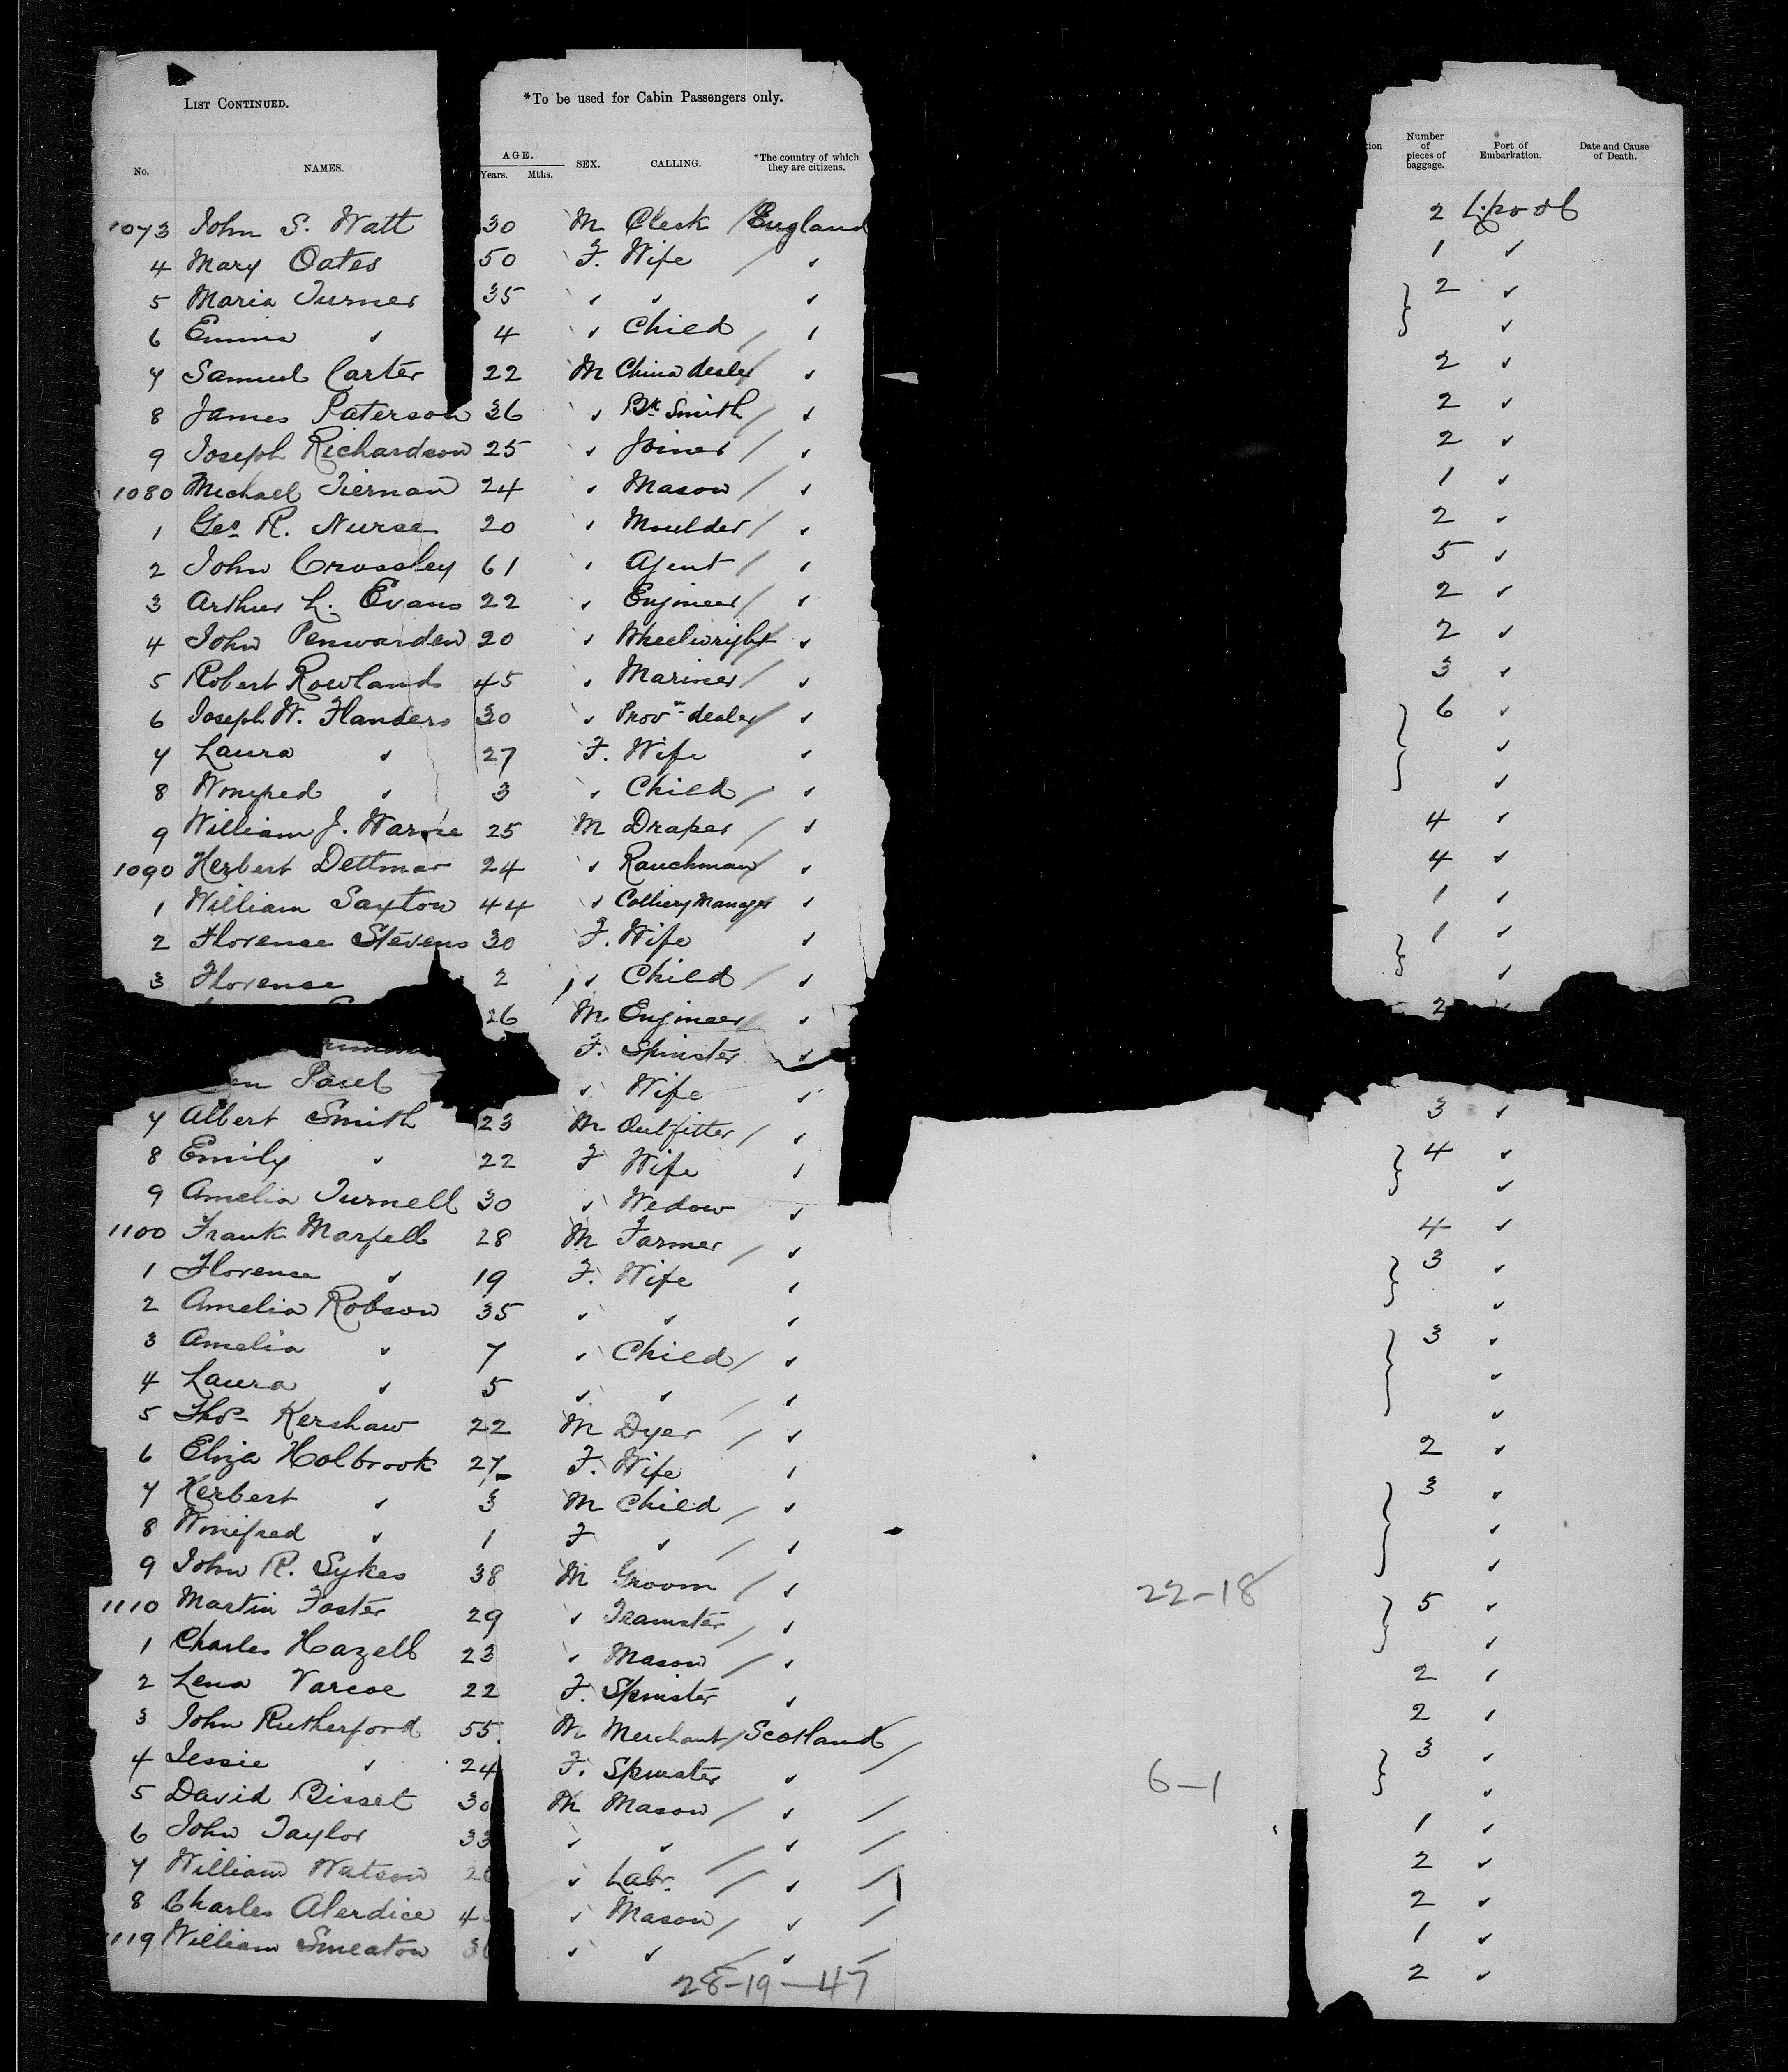 LIST CONTINUED. *To be used for Cabin Passengers only.
No. NAMES. AGE. Years. Mths. SEX. CALLING. *The country of which they are citizens. tion Number of pieces of baggage. Port of Embarkation. Date and Cause of Death.
1073 John S. Watt 30 M Clerk / England 2 L'pool
4 Mary Oates 50 F. Wife / ✓ 1 ✓
5 Maria Turner 35 ✓ ✓ ✓ } 2 ✓
6 Emma ✓ 4 ✓ Child / ✓ ✓
7 Samuel Carter 22 M China dealer / ✓ 2 ✓
8 James Paterson 36 ✓ Bk Smith / ✓ 2 ✓
9 Joseph Richardson 25 ✓ Joiner / ✓ 2 ✓
1080 Michael Tiernan 24 ✓ Mason / ✓ 1 ✓
1 Geo. R. Nurse 20 ✓ Moulder / ✓ 2 ✓
2 John Crossley 61 ✓ Agent / ✓ 5 ✓
3 Arthur L. Evans 22 ✓ Engineer / ✓ 2 ✓
4 John Penwarden 20 ✓ Wheelwright ✓ 2 ✓
5 Robert Rowlands 45 ✓ Mariner / ✓ 3 ✓
6 Joseph W. Flanders 30 ✓ Provn dealer / ✓ } 6 ✓
7 Laura ✓ 27 F. Wife ✓ ✓
8 Winifred ✓ 3 ✓ Child / ✓ ✓
9 William J. Warne 25 M Draper / ✓ 4 ✓
1090 Herbert Dettmar 24 ✓ Ranchman / ✓ 4 ✓
1 William Saxton 44 ✓ Colliery Manager ✓ 1 ✓
2 Florence Stevens 30 F. Wife ✓ } 1 ✓
3 Florence 2 ✓ Child / ✓ ✓
26 M Engineer / ✓ 2
F. Spinster ✓
en ✓ Wife ✓ 3 ✓
7 Albert Smith 23 M Outfitter / ✓ } 4 ✓
8 Emily ✓ 22 F Wife ✓ ✓
9 Amelia Turnell 30 ✓ Wedow ✓ 4 ✓
1100 Frank Marfell 28 M Farmer / ✓ } 3 ✓
1 Florence ✓ 19 F. Wife ✓ ✓
2 Amelia Robson 35 ✓ ✓ ✓ } 3 ✓
3 Amelia ✓ 7 ✓ Child / ✓ ✓
4 Laura ✓ 5 ✓ ✓ / ✓ ✓
5 Thos Kershaw 22 M Dyer / ✓ 2 ✓
6 Eliza Holbrook 27 F. Wife ✓ } 3 ✓
7 Herbert ✓ 3 M Child / ✓ ✓
8 Winifred ✓ 1 F ✓ / ✓ ✓
9 John R. Sykes 38 M Groom / ✓ 22-18 } 5 ✓
1110 Martin Foster 29 ✓ Teamster / ✓ ✓
1 Charles Hazell 23 ✓ Mason / ✓ 2 ✓
2 Lena Varcoe 22 F. Spinster ✓ 2 ✓
3 John Rutherford 55 M Merchant / Scotland / } 3 ✓
4 Jessie ✓ 24 F. Spinster ✓ 6-1 ✓
5 David Bisset 30 M Mason / ✓ / 1 ✓
6 John Taylor 33 ✓ ✓ / ✓ / 2 ✓
7 William Watson 2 ✓ Labr. / ✓ / 2 ✓
8 Charles Alerdice 4 ✓ Mason / ✓ / 1 ✓
1119 William Smeaton 3 ✓ ✓ / ✓ / 2 ✓
28-19-47